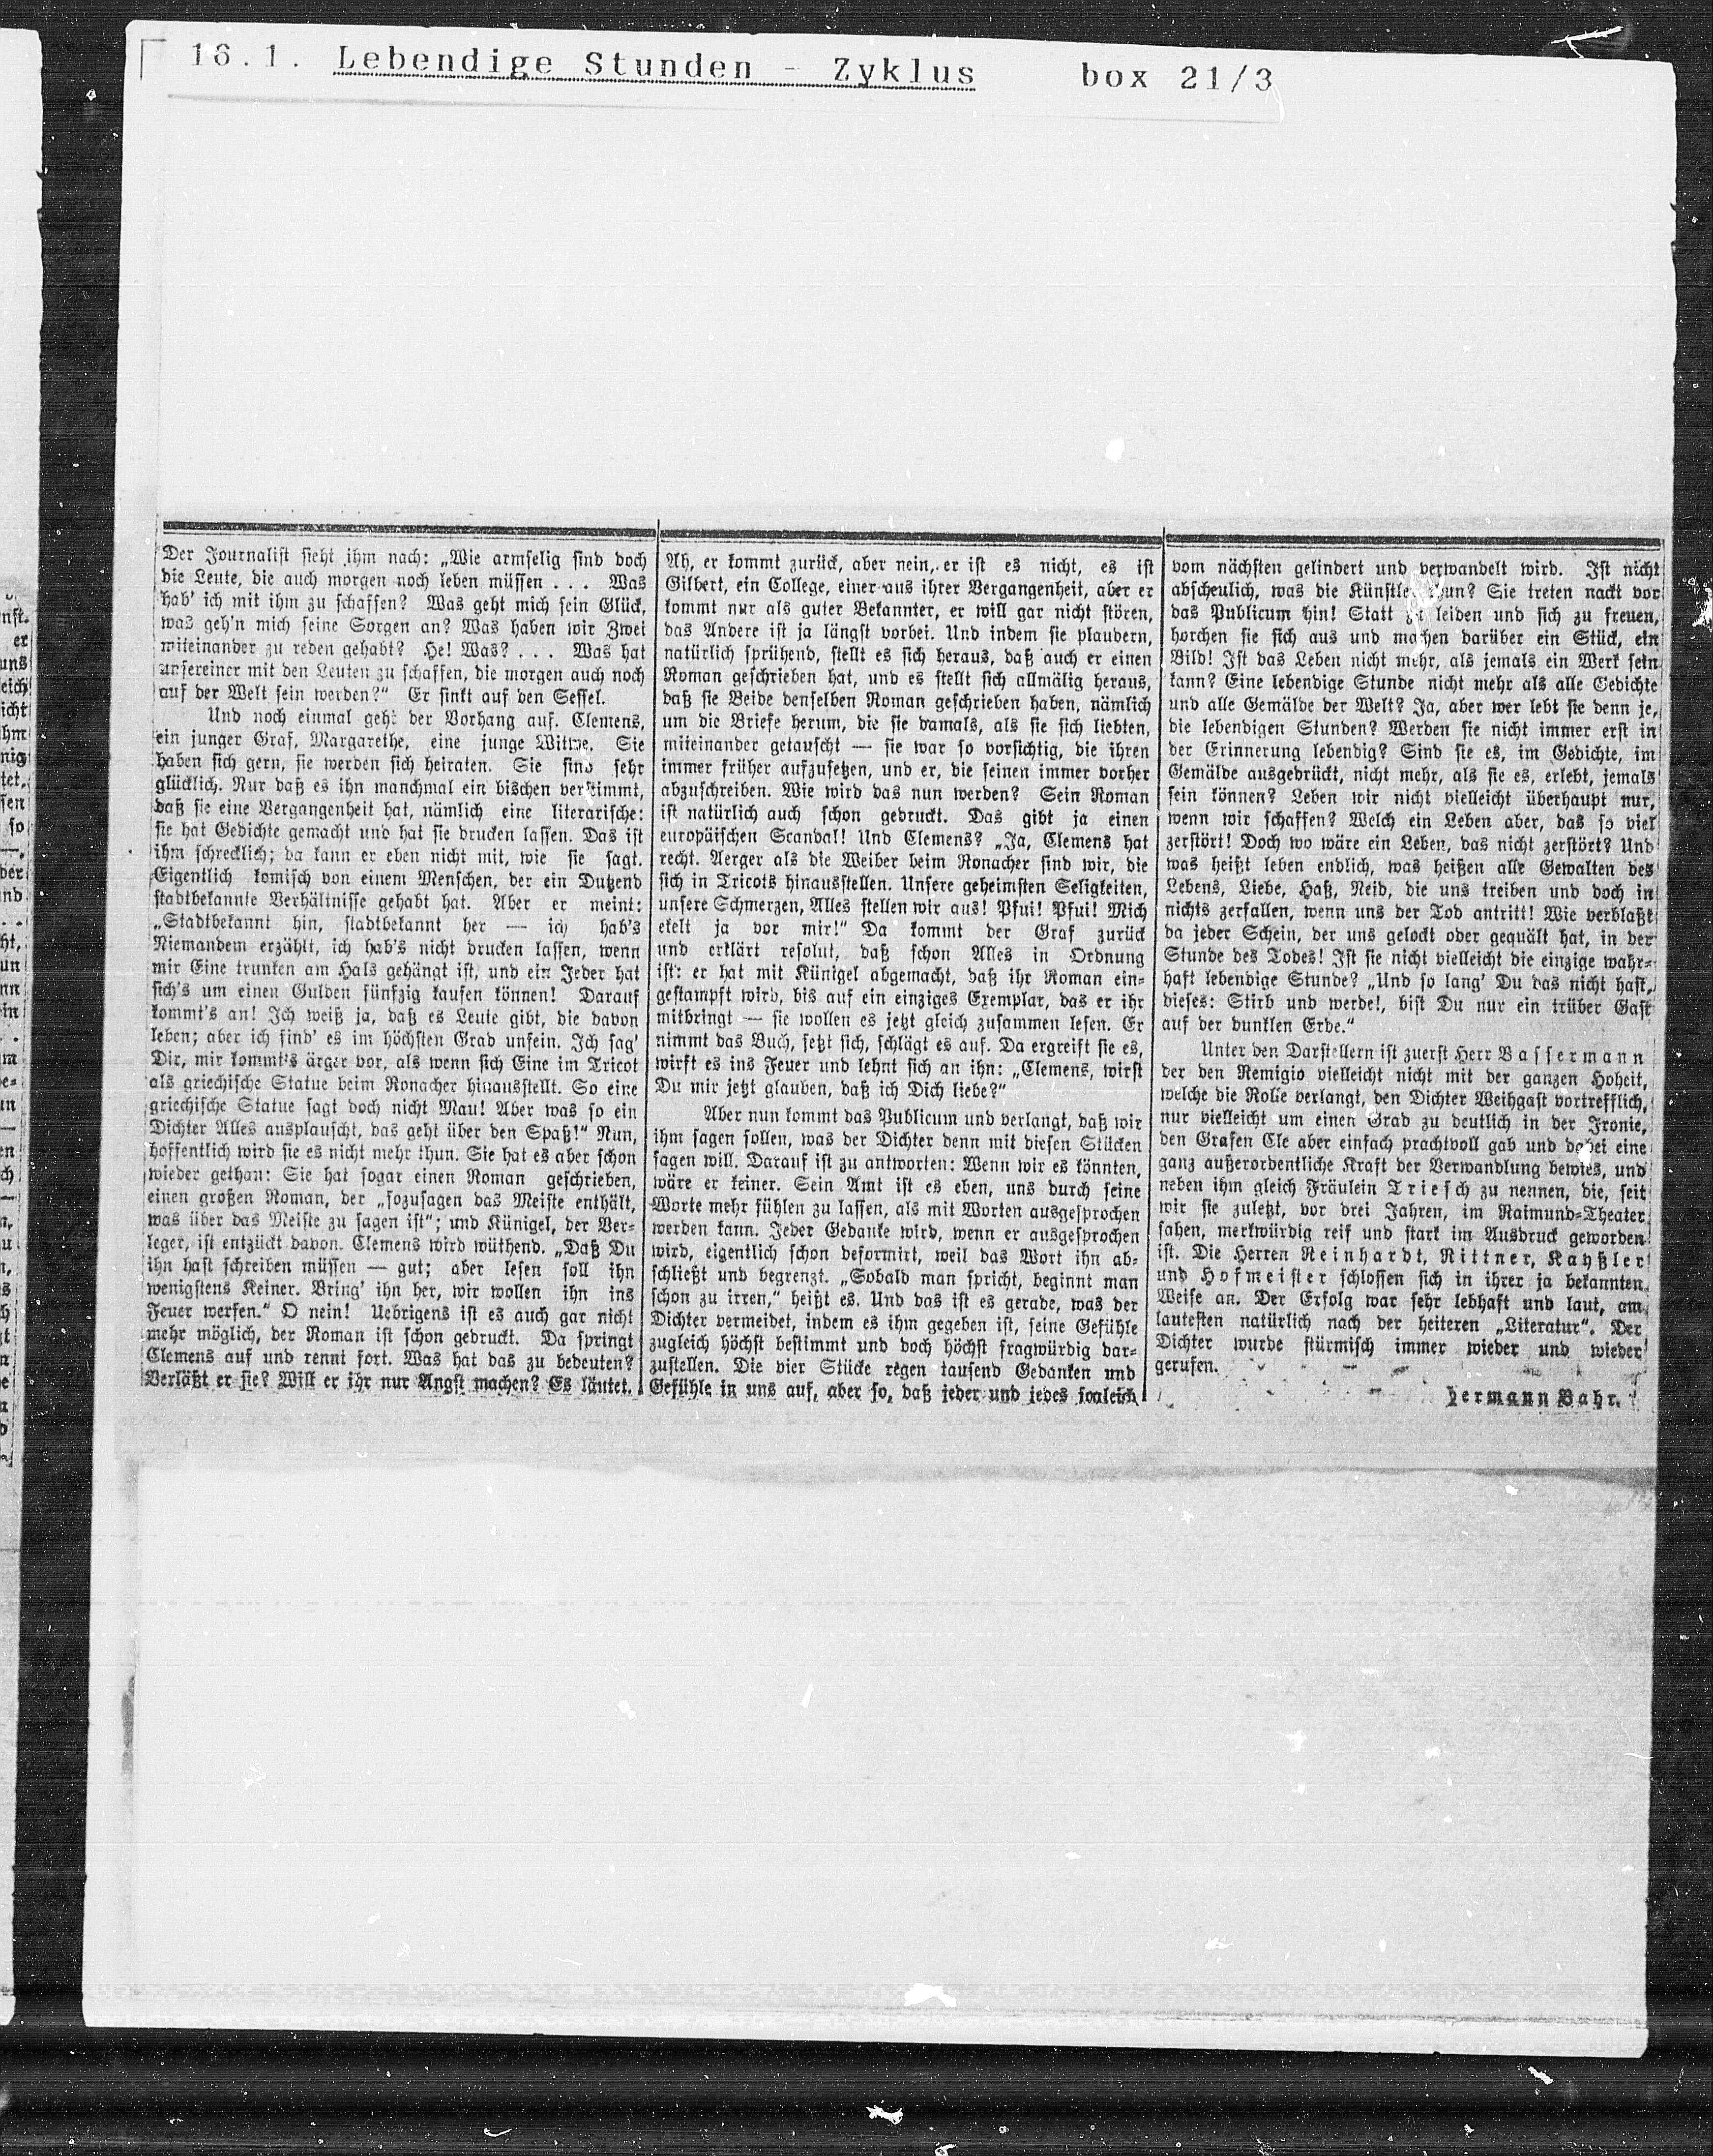 16.1. Lebendige Stunden - Zyklus box 21/3
Der Journalist sieht ihm nach: „Wie armselig sind doch
die Leute, die auch morgen noch leben müssen . . . Was
hab' ich mit ihm zu schaffen? Was geht mich sein Glück,
was geh'n mich seine Sorgen an? Was haben wir Zwei
miteinander zu reden gehabt? He! Was? . . . Was hat
unsereiner mit den Leuten zu schaffen, die morgen auch noch
auf der Welt sein werden?“ Er sinkt auf den Sessel.
Und noch einmal geht der Vorhang auf. Clemens,
ein junger Graf, Margarethe, eine junge Witwe. Sie
haben sich gern, sie werden sich heiraten. Sie sind sehr
glücklich. Nur daß es ihn manchmal ein bischen verstimmt,
daß sie eine Vergangenheit hat, nämlich eine literarische:
sie hat Gedichte gemacht und hat sie drucken lassen. Das ist
ihm schrecklich; da kann er eben nicht mit, wie sie sagt.
Eigentlich komisch von einem Menschen, der ein Dutzend
stadtbekannte Verhältnisse gehabt hat. Aber er meint:
„Stadtbekannt hin, stadtbekannt her — ich hab's
Niemandem erzählt, ich hab's nicht drucken lassen, wenn
mir Eine trunken am Hals gehängt ist, und ein Jeder hat
sich's um einen Gulden fünfzig kaufen können! Darauf
kommt's an! Ich weiß ja, daß es Leute gibt, die davon
leben; aber ich find' es im höchsten Grad unfein. Ich sag'
Dir, mir kommt's ärger vor, als wenn sich Eine im Tricot
als griechische Statue beim Ronacher hinausstellt. So eine
griechische Statue sagt doch nicht Mau! Aber was so ein
Dichter Alles ausplauscht, das geht über den Spaß!“ Nun,
hoffentlich wird sie es nicht mehr thun. Sie hat es aber schon
wieder gethan: Sie hat sogar einen Roman geschrieben,
einen großen Roman, der „sozusagen das Meiste enthält,
was über das Meiste zu sagen ist“; und Künigel, der Ver-
leger, ist entzückt davon. Clemens wird wüthend. „Daß Du
ihn hast schreiben müssen — gut; aber lesen soll ihn
wenigstens Keiner. Bring' ihn her, wir wollen ihn ins
Feuer werfen.“ O nein! Uebrigens ist es auch gar nicht
mehr möglich, der Roman ist schon gedruckt. Da springt
Clemens auf und rennt fort. Was hat das zu bedeuten?
Verläßt er sie? Will er ihr nur Angst machen? Es läutet.
Ah, er kommt zurück, aber nein, er ist es nicht, es ist
Gilbert, ein College, einer aus ihrer Vergangenheit, aber er
kommt nur als guter Bekannter, er will gar nicht stören,
das Andere ist ja längst vorbei. Und indem sie plaudern,
natürlich sprühend, stellt es sich heraus, daß auch er einen
Roman geschrieben hat, und es stellt sich allmälig heraus,
daß sie Beide denselben Roman geschrieben haben, nämlich
um die Briefe herum, die sie damals, als sie sich liebten,
miteinander getauscht — sie war so vorsichtig, die ihren
immer früher aufzusetzen, und er, die seinen immer vorher
abzuschreiben. Wie wird das nun werden? Sein Roman
ist natürlich auch schon gedruckt. Das gibt ja einen
europäischen Scandal! Und Clemens? „Ja, Clemens hat
recht. Aerger als die Weiber beim Ronacher sind wir, die
sich in Tricots hinausstellen. Unsere geheimsten Seligkeiten,
unsere Schmerzen, Alles stellen wir aus! Pfui! Pfui! Mich
ekelt ja vor mir!“ Da kommt der Graf zurück
und erklärt resolut, daß schon Alles in Ordnung
ist: er hat mit Künigel abgemacht, daß ihr Roman ein-
gestampft wird, bis auf ein einziges Exemplar, das er ihr
mitbringt — sie wollen es jetzt gleich zusammen lesen. Er
nimmt das Buch, setzt sich, schlägt es auf. Da ergreift sie es,
wirft es ins Feuer und lehnt sich an ihn: „Clemens, wirst
Du mir jetzt glauben, daß ich Dich liebe?“
Aber nun kommt das Publicum und verlangt, daß wir
ihm sagen sollen, was der Dichter denn mit diesen Stücken
sagen will. Darauf ist zu antworten: Wenn wir es könnten,
wäre er keiner. Sein Amt ist es eben, uns durch seine
Worte mehr fühlen zu lassen, als mit Worten ausgesprochen
werden kann. Jeder Gedanke wird, wenn er ausgesprochen
wird, eigentlich schon deformirt, weil das Wort ihn ab-
schließt und begrenzt. „Sobald man spricht, beginnt man
schon zu irren,“ heißt es. Und das ist es gerade, was der
Dichter vermeidet, indem es ihm gegeben ist, seine Gefühle
zugleich höchst bestimmt und doch höchst fragwürdig dar-
zustellen. Die vier Stücke regen tausend Gedanken und
Gefühle in uns auf, aber so, daß jeder und jedes sogleich
vom nächsten gelindert und verwandelt wird. Ist nicht
abscheulich, was die Künstler thun? Sie treten nackt vor
das Publicum hin! Statt zu leiden und sich zu freuen,
horchen sie sich aus und machen darüber ein Stück, ein
Bild! Ist das Leben nicht mehr, als jemals ein Werk sein
kann? Eine lebendige Stunde nicht mehr als alle Gedichte
und alle Gemälde der Welt? Ja, aber wer lebt sie denn je,
die lebendigen Stunden? Werden sie nicht immer erst in
der Erinnerung lebendig? Sind sie es, im Gedichte, im
Gemälde ausgedrückt, nicht mehr, als sie es, erlebt, jemals
sein können? Leben wir nicht vielleicht überhaupt nur,
wenn wir schaffen? Welch ein Leben aber, das so viel
zerstört! Doch wo wäre ein Leben, das nicht zerstört? Und
was heißt leben endlich, was heißen alle Gewalten des
Lebens, Liebe, Haß, Neid, die uns treiben und doch in
nichts zerfallen, wenn uns der Tod antritt! Wie verblaßt
da jeder Schein, der uns gelockt oder gequält hat, in der
Stunde des Todes! Ist sie nicht vielleicht die einzige wahr-
haft lebendige Stunde? „Und so lang' Du das nicht hast,
dieses: Stirb und werde!, bist Du nur ein trüber Gast
auf der dunklen Erde.“
Unter den Darstellern ist zuerst Herr Bassermann
der den Remigio vielleicht nicht mit der ganzen Hoheit,
welche die Rolle verlangt, den Dichter Weihgast vortrefflich,
nur vielleicht um einen Grad zu deutlich in der Ironie,
den Grafen Cle aber einfach prachtvoll gab und dabei eine
ganz außerordentliche Kraft der Verwandlung bewies, und
neben ihm gleich Fräulein Triesch zu nennen, die, seit
wir sie zuletzt, vor drei Jahren, im Raimund-Theater
sahen, merkwürdig reif und stark im Ausdruck geworden
ist. Die Herren Reinhardt, Rittner, Kayßler
und Hofmeister schlossen sich in ihrer ja bekannten
Weise an. Der Erfolg war sehr lebhaft und laut, am
lautesten natürlich nach der heiteren „Literatur“. Der
Dichter wurde stürmisch immer wieder und wieder
gerufen.
Hermann Bahr.